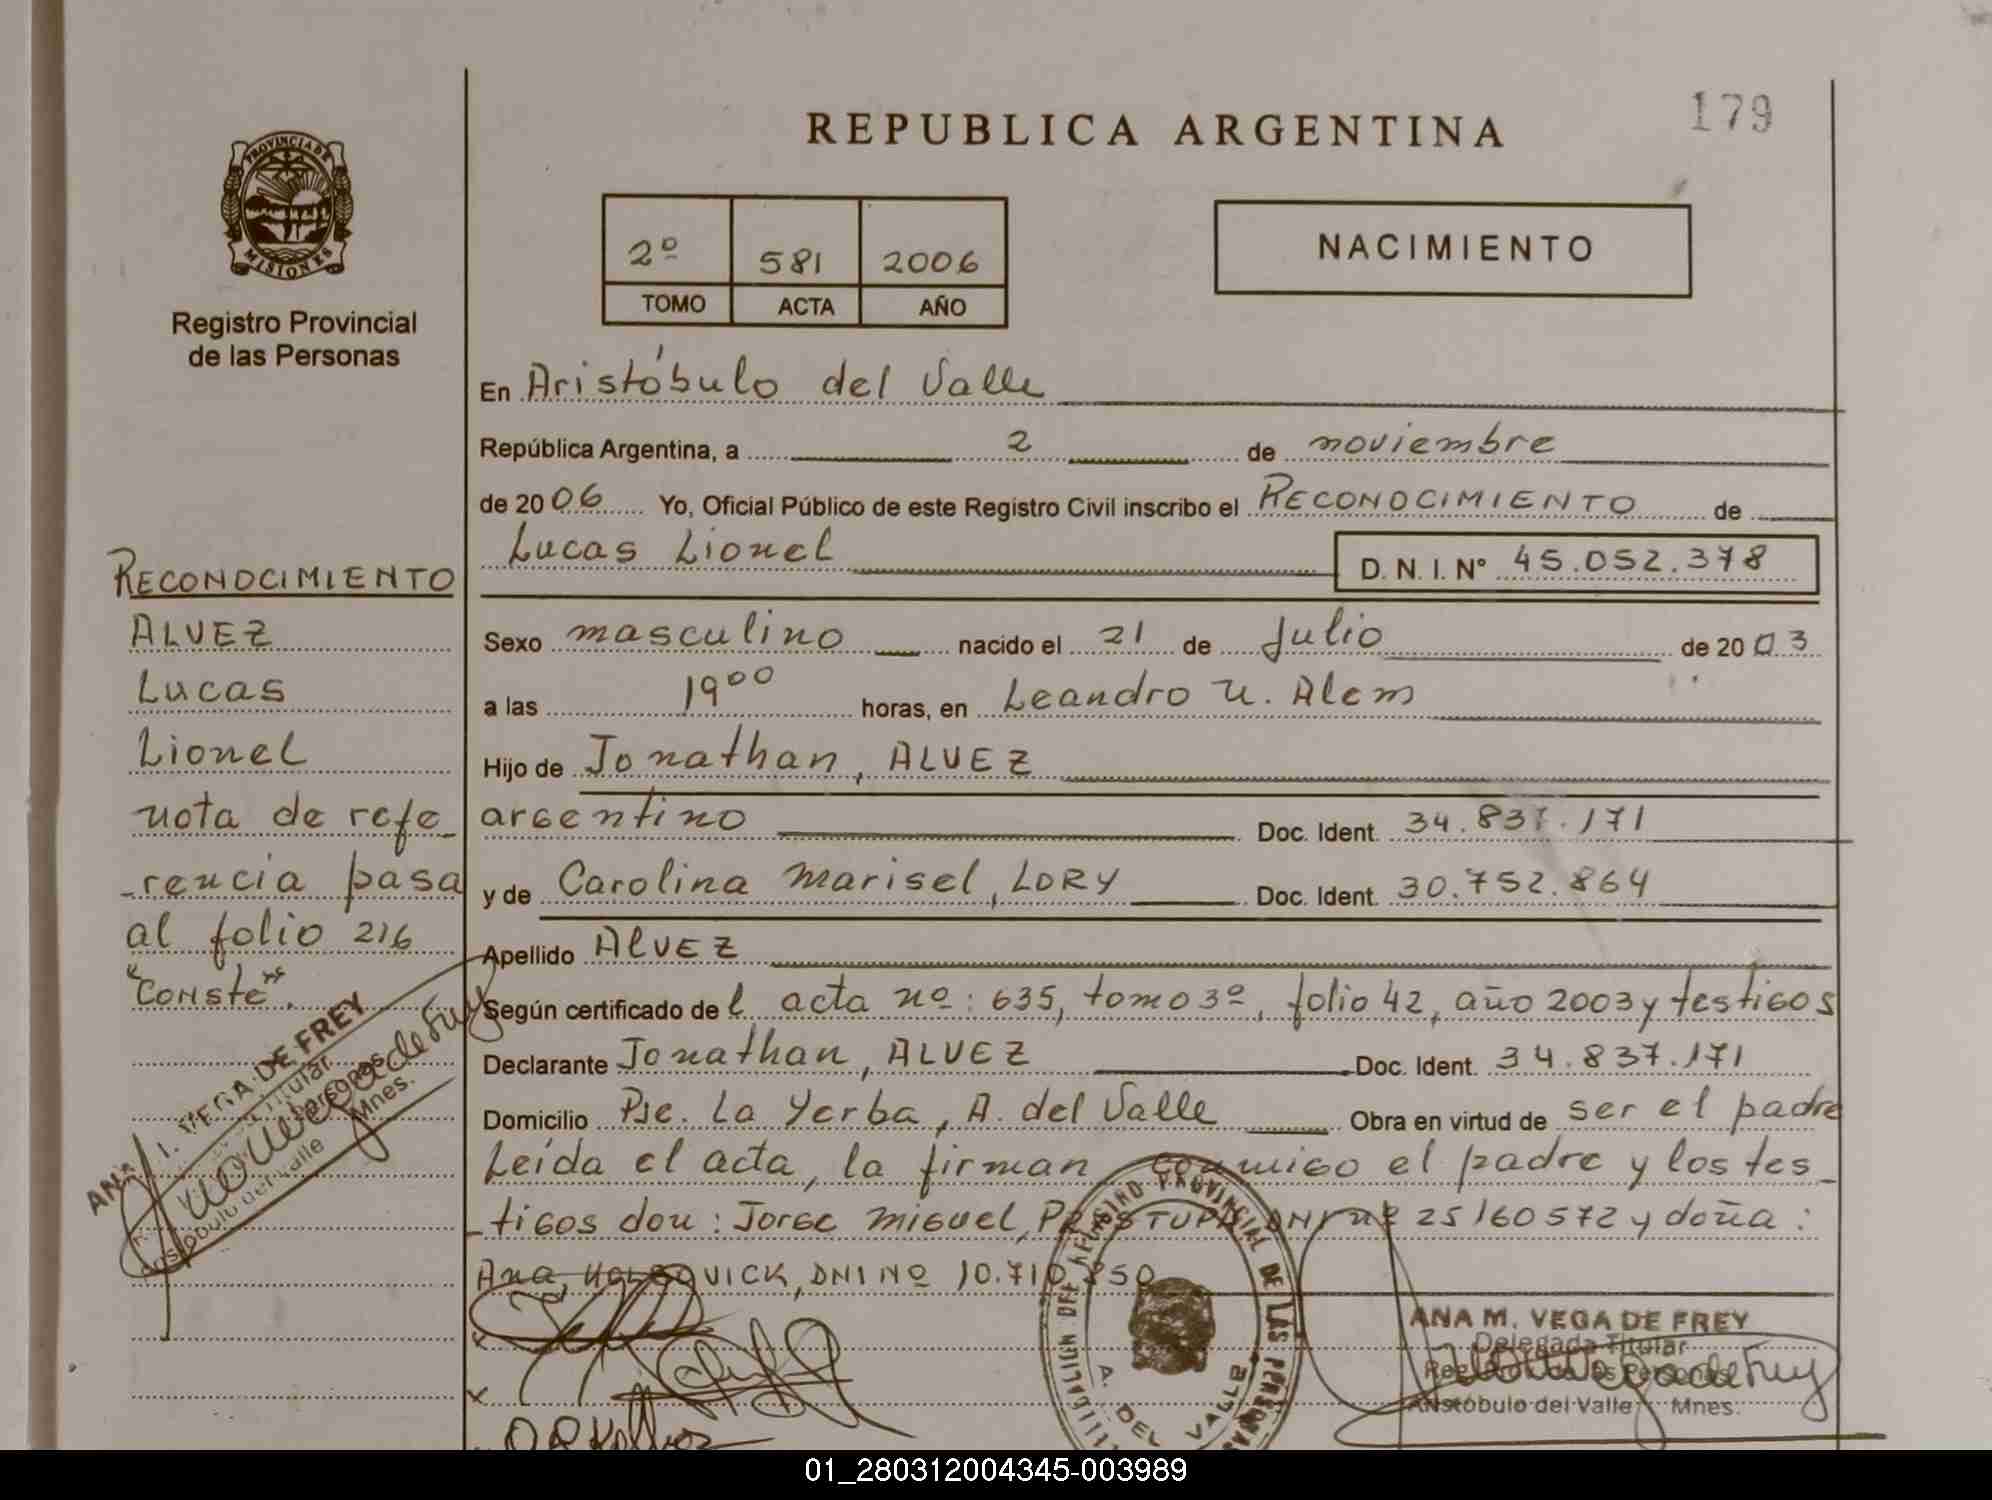 179
REPUBLICA ARGENTINA
PROVINCIA DE
MISIONES
Registro Provincial
de las Personas
2º 581 2006
TOMO ACTA AÑO
NACIMIENTO
En Aristóbulo del Valle
República Argentina, a 2 de noviembre
de 2006 Yo, Oficial Público de este Registro Civil inscribo el RECONOCIMIENTO de
Lucas Lionel D. N. I. Nº 45.052.378
Sexo masculino nacido el 21 de Julio de 2003
a las 19⁰⁰ horas, en Leandro N. Alem
Hijo de Jonathan, ALVEZ
argentino Doc. Ident. 34.837.171
y de Carolina Marisel, LORY Doc. Ident. 30.752.864
Apellido ALVEZ
Según certificado del acta nº: 635, tomo 3º, folio 42, año 2003 y testigos
Declarante Jonathan, ALVEZ Doc. Ident. 34.837.171
Domicilio Pje. La Yerba, A. del Valle Obra en virtud de ser el padre
Leída el acta, la firman conmigo el padre y los tes_
_tigos don: Jorge Miguel, DNI nº 25160572 y doña:
Ana, DNI Nº 10.710.850
RECONOCIMIENTO
ALVEZ
Lucas
Lionel
nota de refe_
_rencia pasa
al folio 216
"Conste".
ANA M. VEGA DE FREY
Titular
Personas
Aristóbulo del Valle Mnes.
REGISTRO PROVINCIAL DE LAS PERSONAS
A. DEL VALLE
ANA M. VEGA DE FREY
Delegada Titular
Registro de las Personas
Aristóbulo del Valle - Mnes.
01_280312004345-003989